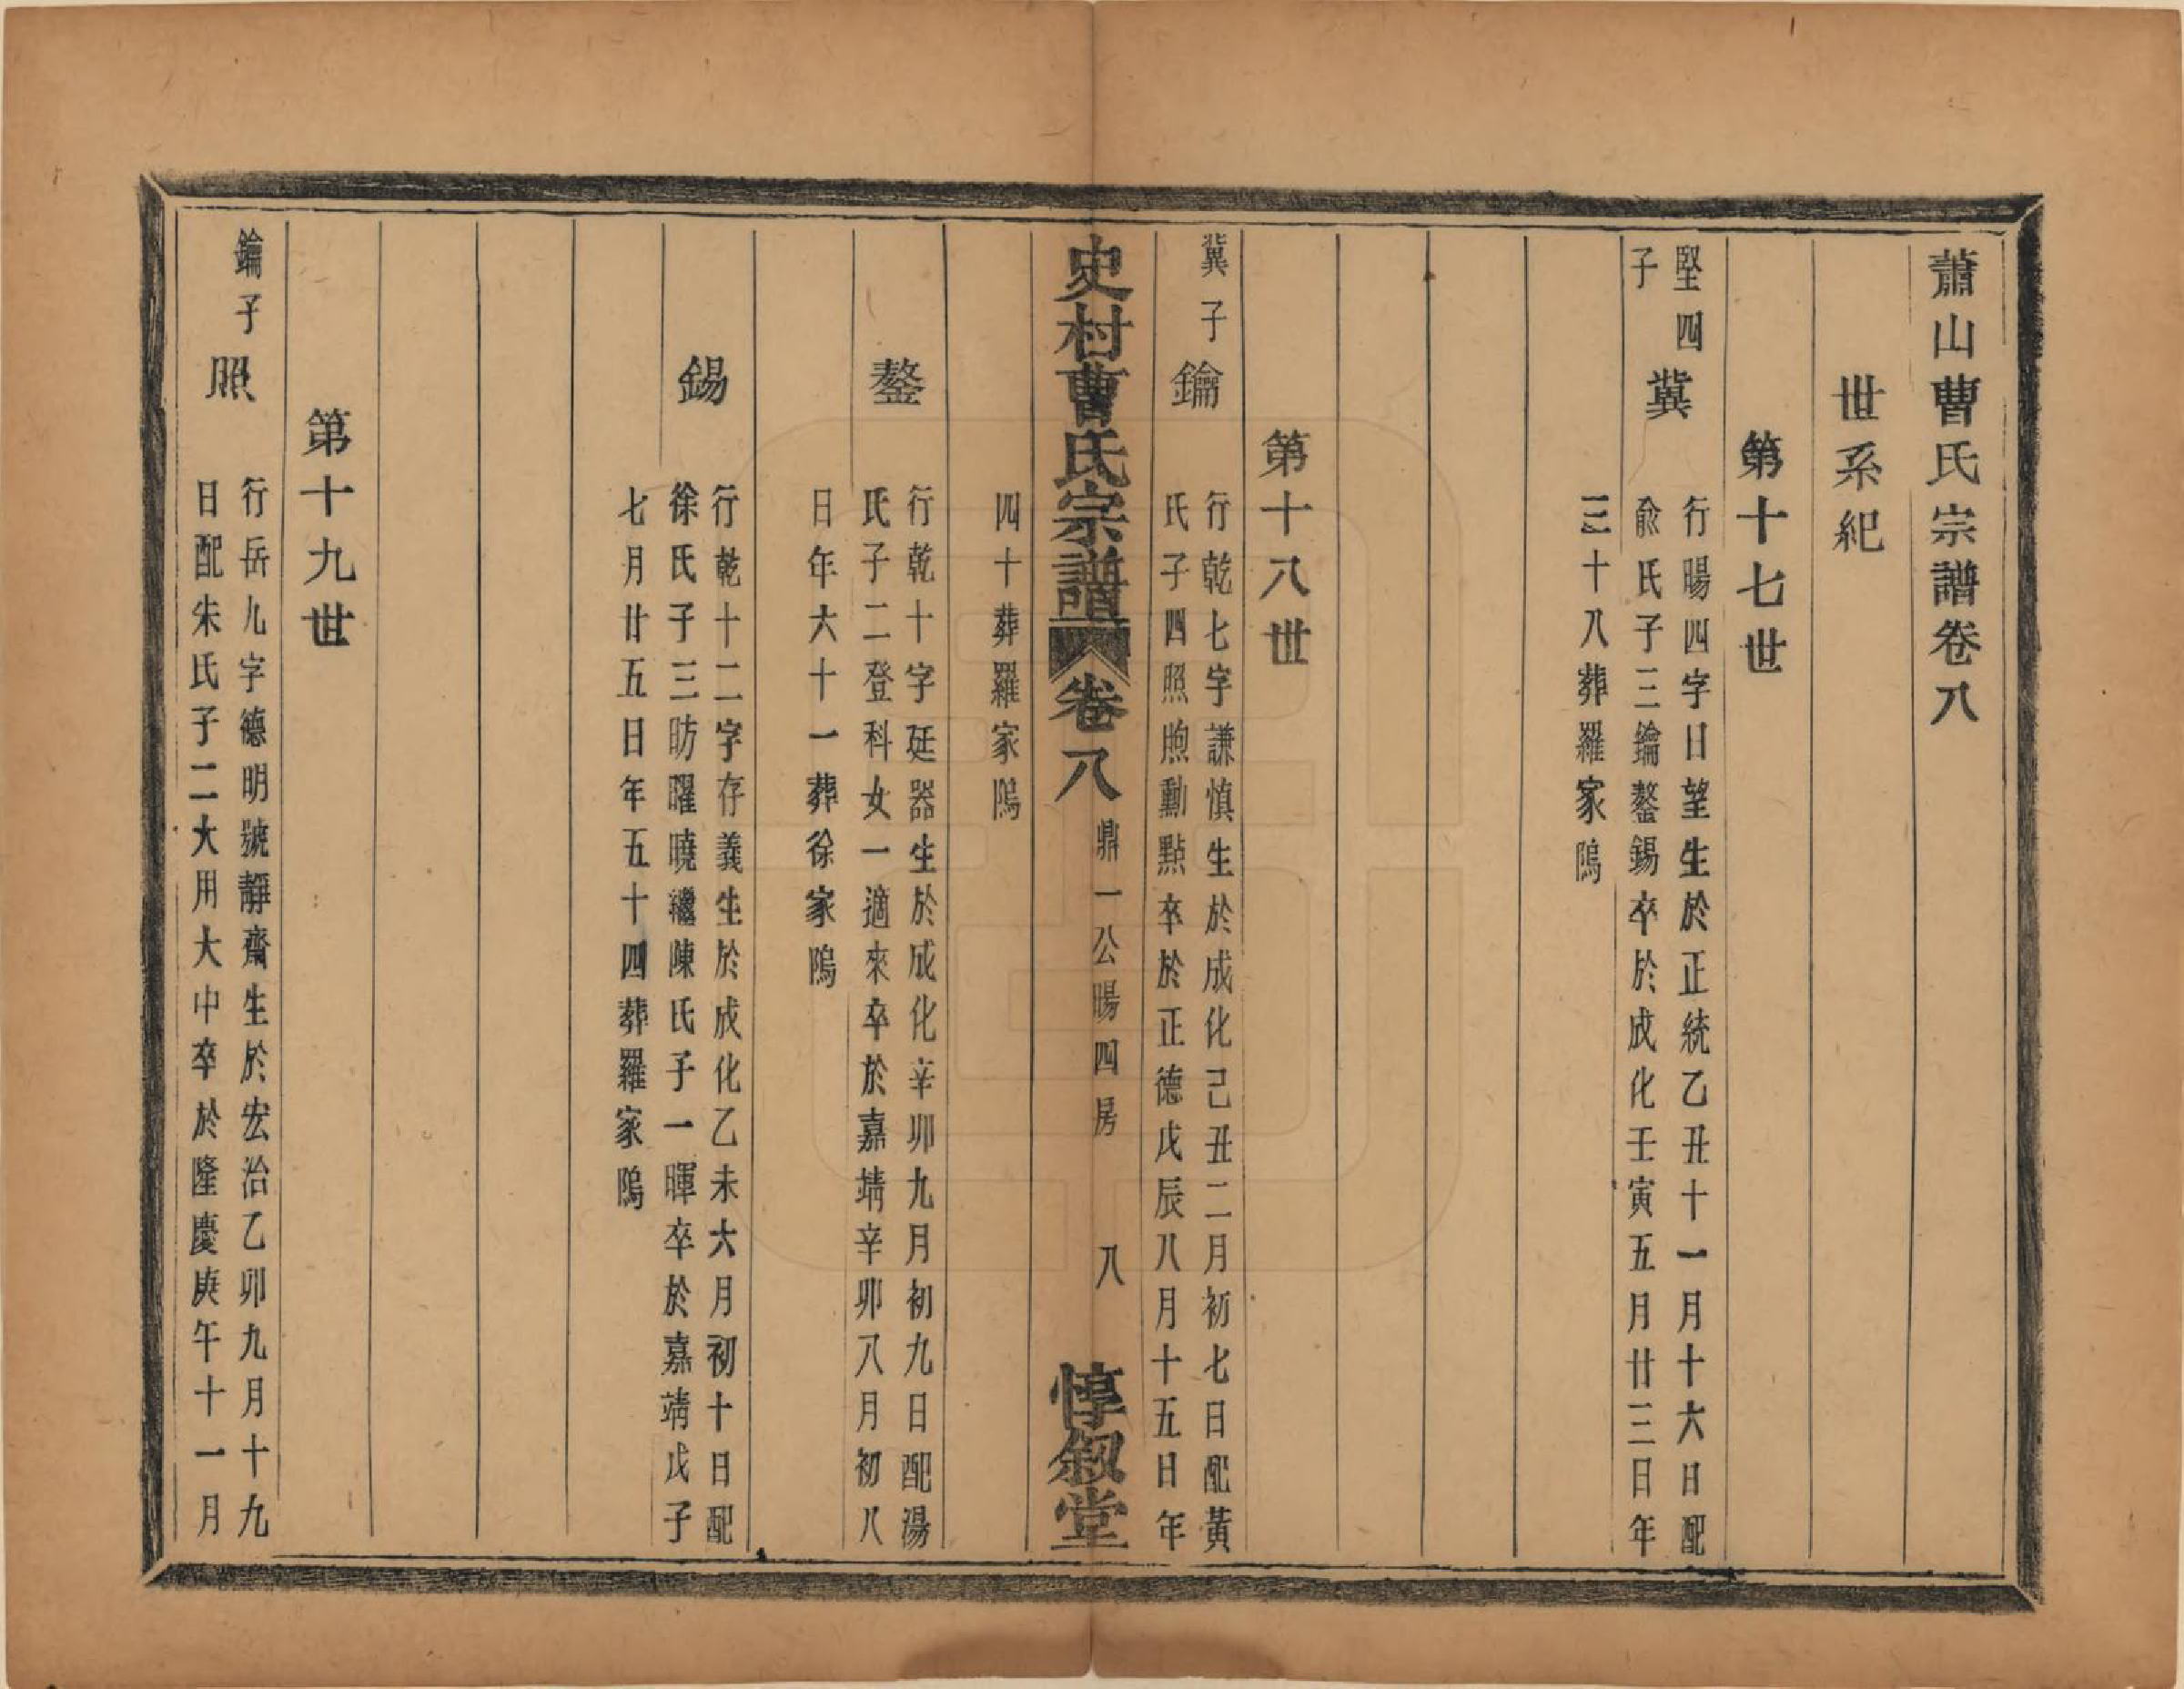 蕭山曹氏宗譜卷八
世系紀
第十七世
堅四
子
冀
行暘四字日望生於正統乙丑十一月十六日配
兪氏子三鑰鏊錫卒於成化壬寅五月廿三日年
三十八葬羅家隖
第十八世
冀子
鑰
行乾七字謙慎生於成化己丑二月初七日配黃
氏子四照煦勳點卒於正德戊辰八月十五日年
史村曹氏宗譜
卷八
鼎一公暘四房
八
惇叙堂
四十葬羅家隖
鏊
行乾十字廷器生於成化辛卯九月初九日配湯
氏子二登科女一適來卒於嘉靖辛卯八月初八
日年六十一葬徐家隖
錫
行乾十二字存義生於成化乙未六月初十日配
徐氏子三昉曜曉繼陳氏子一暉卒於嘉靖戊子
七月廿五日年五十四葬羅家隖
第十九世
鑰子
照
行岳九字德明號靜齋生於宏治乙卯九月十九
日配朱氏子二大用大中卒於隆慶庚午十一月